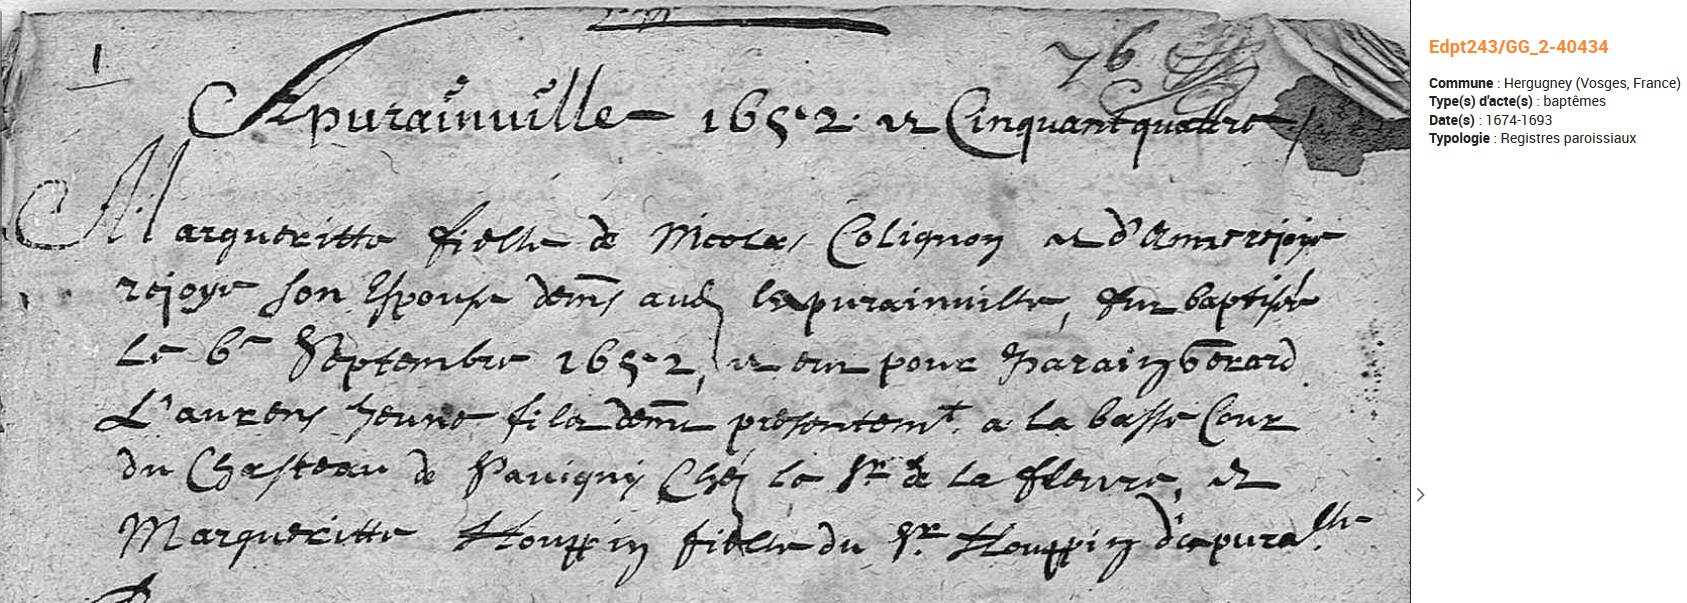 1
76
Apurainville 1652 et Cinquantquattre
Margueritte fielle de Nicolas Colignon et d'Anne rejoye
rejoye son Espouse dem^s aud^ lapurainville, fut baptisée
Le 6^e Septembre 1652, et eut pour Parain Gerard
L'aurens Jeune fils dem^t presentem^t a la basse Cour
du Chasteau de Savigny Chez le S^r de la fleure, et
Margueritte Houppin fielle du S^r Houppin d'apura^lle
Edpt243/GG_2-40434
Commune : Hergugney (Vosges, France)
Type(s) d'acte(s) : baptêmes
Date(s) : 1674-1693
Typologie : Registres paroissiaux